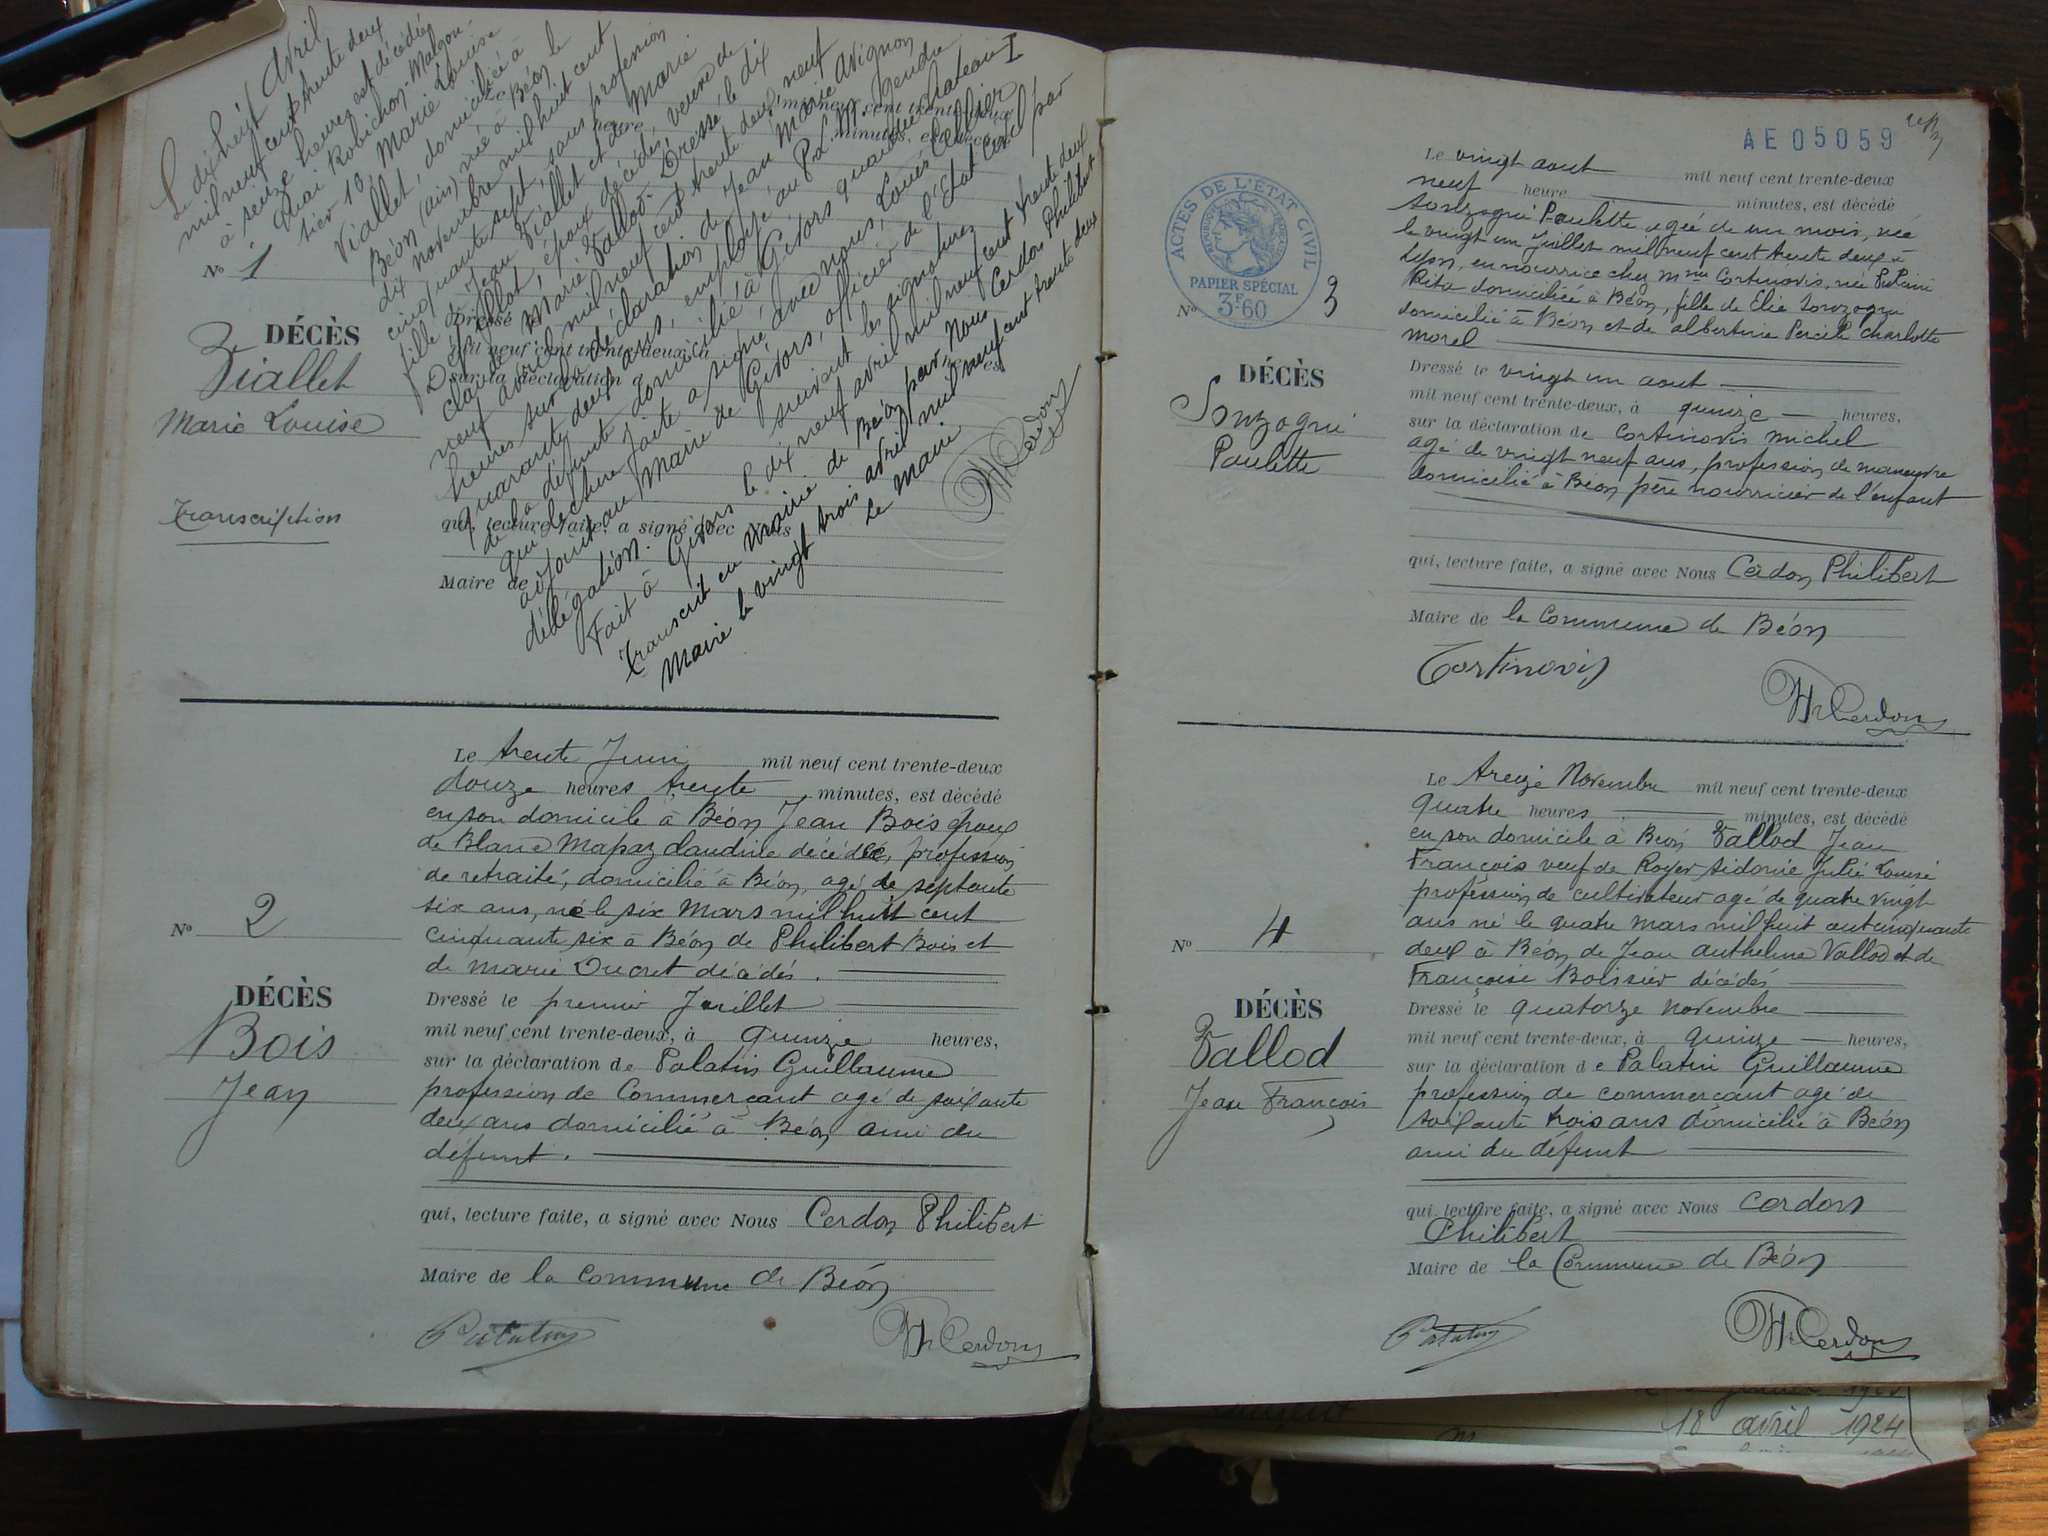 Le dix huit Avril
mil neuf cent trente deux
à seize heures est décédée
Quai Robichon-Malgon-
tier 10, Marie Louise
Viallet, domiciliée à
Béon (ain) née à Béon le
dix novembre mil huit cent
cinquante sept, sans profession
fille de Jean Viallet et de Marie
époux décédés, veuve de
Claude Marie Vallod. Dressé le dix
neuf avril mil neuf cent trente deux, neuf
heures sur la déclaration de Jean Marie Avignon
quarante deux ans, employé au P.L.M. gendre
de la défunte domicilié à Givors quai du
qui lecture faite a signé avec nous, Louis Cellier
adjoint au Maire de Givors, officier de l'Etat Civil par
délégation. suivent les signatures
Fait à Givors le dix neuf avril mil neuf cent trente deux
Transcrit en mairie de Béon par Nous Cerdon Philibert
Maire le vingt trois avril mil neuf cent trente deux
Le Maire
Ph Cerdon
No 1
DÉCÈS
Viallet
Marie Louise
Transcription
Dressé le
mil neuf cent trente-deux, à
sur la déclaration d
qui, lecture faite, a signé avec Nous
Maire de
Le trente Juin mil neuf cent trente-deux
douze heures trente minutes, est décédé
en son domicile à Béon Jean Bois époux
de Blanc Mapaz Claudine décédée, profession
de retraité, domicilié à Béon, agé de septante
six ans, né le six Mars mil huit cent
cinquante six à Béon de Philibert Bois et
de Marie Ducret décédés.
No 2
DÉCÈS
Bois
Jean
Dressé le premier Juillet
mil neuf cent trente-deux, à quinze heures,
sur la déclaration de Palatin Guillaume
profession de Commerçant agé de soixante
deux ans domicilié à Béon ami du
défunt.
qui, lecture faite, a signé avec Nous Cerdon Philibert
Maire de la commune de Béon
Palatin
Ph Cerdon
AE 05059
ACTES DE L'ÉTAT CIVIL
PAPIER SPÉCIAL
3F60
Le vingt aout mil neuf cent trente-deux
neuf heure minutes, est décédé
Sonzogni Paulette agée de un mois, née
le vingt un Juillet mil neuf cent trente deux à
Lyon, en nourrice chez Mme Cortinovis, née
Rita domiciliée à Béon, fille de Elie Sonzogni
domicilié à Béon et de albertine Percile Charlotte
Morel
No 3
DÉCÈS
Sonzogni
Paulette
Dressé le vingt un aout
mil neuf cent trente-deux, à quinze heures,
sur la déclaration de Cortinovis Michel
agé de vingt neuf ans, profession de manœuvre
domicilié à Béon père nourricier de l'enfant
qui, lecture faite, a signé avec Nous Cerdon Philibert
Maire de la Commune de Béon
Cortinovis
Ph Cerdon
Le treize Novembre mil neuf cent trente-deux
quatre heures minutes, est décédé
en son domicile à Béon Vallod Jean
François veuf de Royer Sidonie Julie Louise
profession de cultivateur agé de quatre vingt
ans né le quatre Mars mil huit cent cinquante
deux à Béon de Jean Anthelme Vallod et de
Françoise Boissier décédés
No 4
DÉCÈS
Vallod
Jean François
Dressé le quatorze novembre
mil neuf cent trente-deux, à quinze heures,
sur la déclaration de Palatin Guillaume
profession de commerçant agé de
soixante trois ans domicilié à Béon
ami du défunt
qui, lecture faite, a signé avec Nous Cerdon
Philibert
Maire de la Commune de Béon
Palatin
Ph Cerdon
18 avril 1924